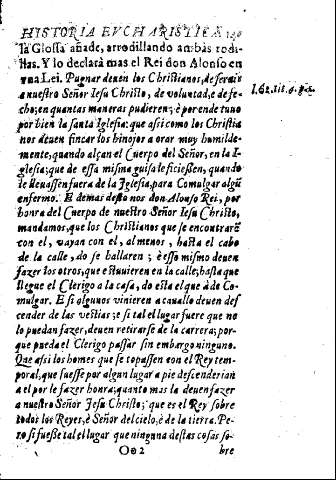 HISTORIA EVCHARISTICA
la Glossa añade, arrodillando ambas rodi-
llas. Y lo declara mas el Rei don Alonso en
vna Lei. Pugnar deuen los Christianos, de seruir
a nuestro Señor Iesu Christo, de voluntad, e de fe-
cho; en quantas maneras pudieren; è por ende tuuo
por bien la santa Iglesia: que assi como los Christia
nos deuen fincar los hinojos a orar muy humilde-
mente, quando alçan el Cuerpo del Señor, en la I-
glesia; que de essa misma guisa le ficiessen, quando
le lleuassen fuera de la Iglesia, para Comulgar algũ
enfermo. E demas desto nos don Alonso Rei, por
honra del Cuerpo de nuestro Señor Iesu Christo,
mandamos, que los Christianos que se encontrarẽ
con el, vayan con el, al menos, hasta el cabo
de la calle, do se hallaren; è esso mismo deuen
fazer los otros, que estuuieren en la calle; hasta que
llegue el Clerigo a la casa, do esta el que à de Co-
mulgar. E si algunos vinieren a cauallo deuen des
cender de las vestias; e si tal el lugar fuere que no
lo puedan fazer, deuen retirarse de la carrera; por-
que pueda el Clerigo passar sin embargo ninguno.
Que assi los homes que se topassen con el Rey tem-
poral, que fuesse por algun lugar a pie descenderian
a el por le fazer honra; quanto mas la deuen fazer
a nuestro Señor Iesu Christo; que es el Rey sobre
todos los Reyes, è Señor del cielo, è de la tierra. Pe-
ro si fuesse tal el lugar que ninguna destas cosas fo-
Oo 2 bre
l. 62. tit. 4. par.